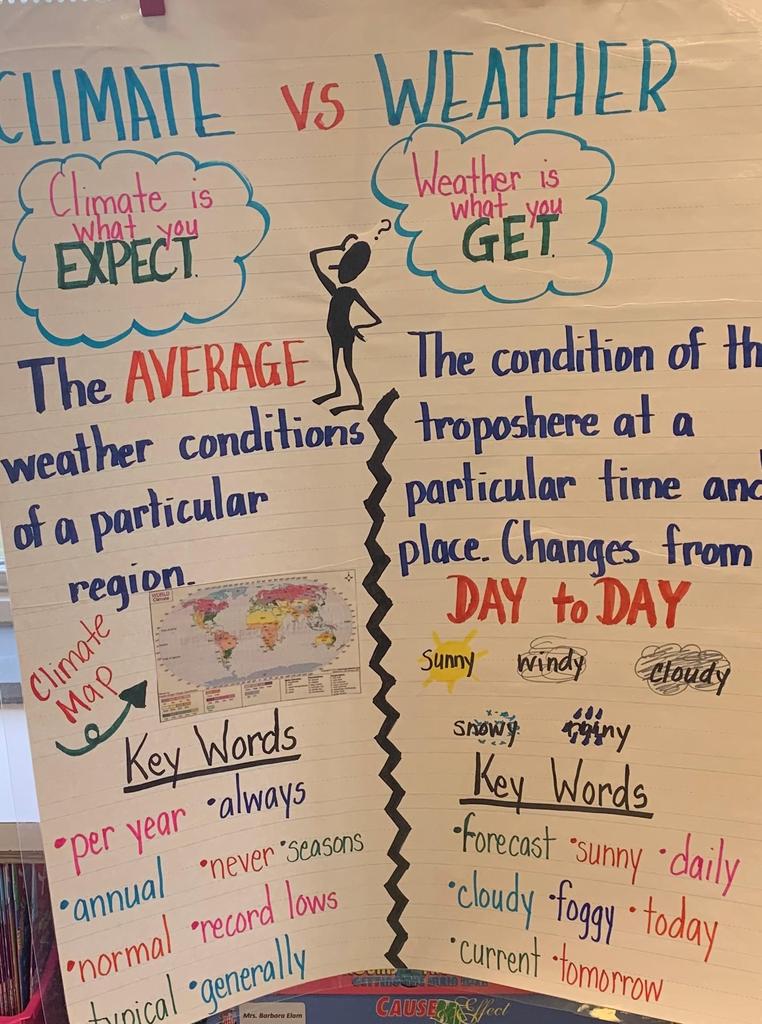 CLIMATE VS WEATHER
Climate is
what you
EXPECT.
Weather is
what you
GET.
?
The AVERAGE
weather conditions
of a particular
region.
Climate
Map
WORLD
Climate
Key Words
•per year •always
•annual •never •seasons
•normal •record lows
typical •generally
The condition of th
troposhere at a
particular time and
place. Changes from
DAY to DAY
Sunny windy cloudy
snowy rainy
Key Words
•forecast •sunny •daily
•cloudy •foggy •today
•current •tomorrow
CAUSE & Effect
Mrs. Barbora Elam